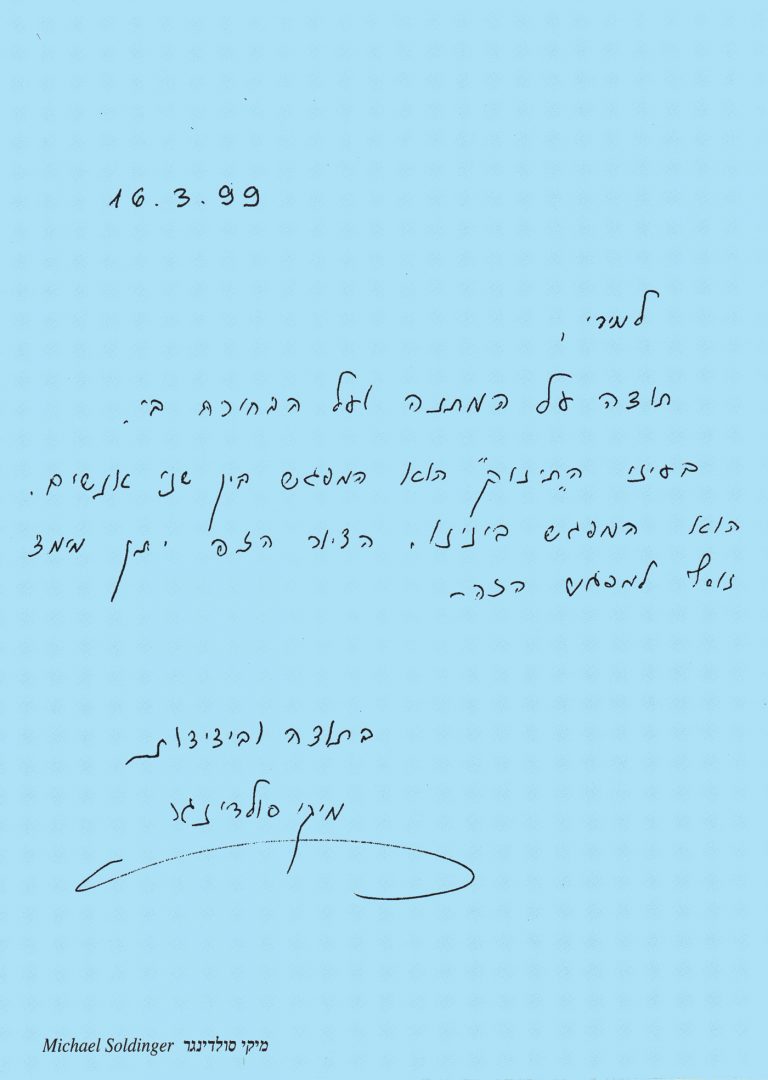 16.3.99
למירי,
תודה על המתנה ועל הבחירה בי.
בעיני "התינוק" הוא המפגש בין שני אנשים.
הוא המפגש בינינו. הציור הזה יתן מימד
נוסף למפגש הזה –
בתודה ובידידות
מיקי סולדינגר
Michael Soldinger מיקי סולדינגר